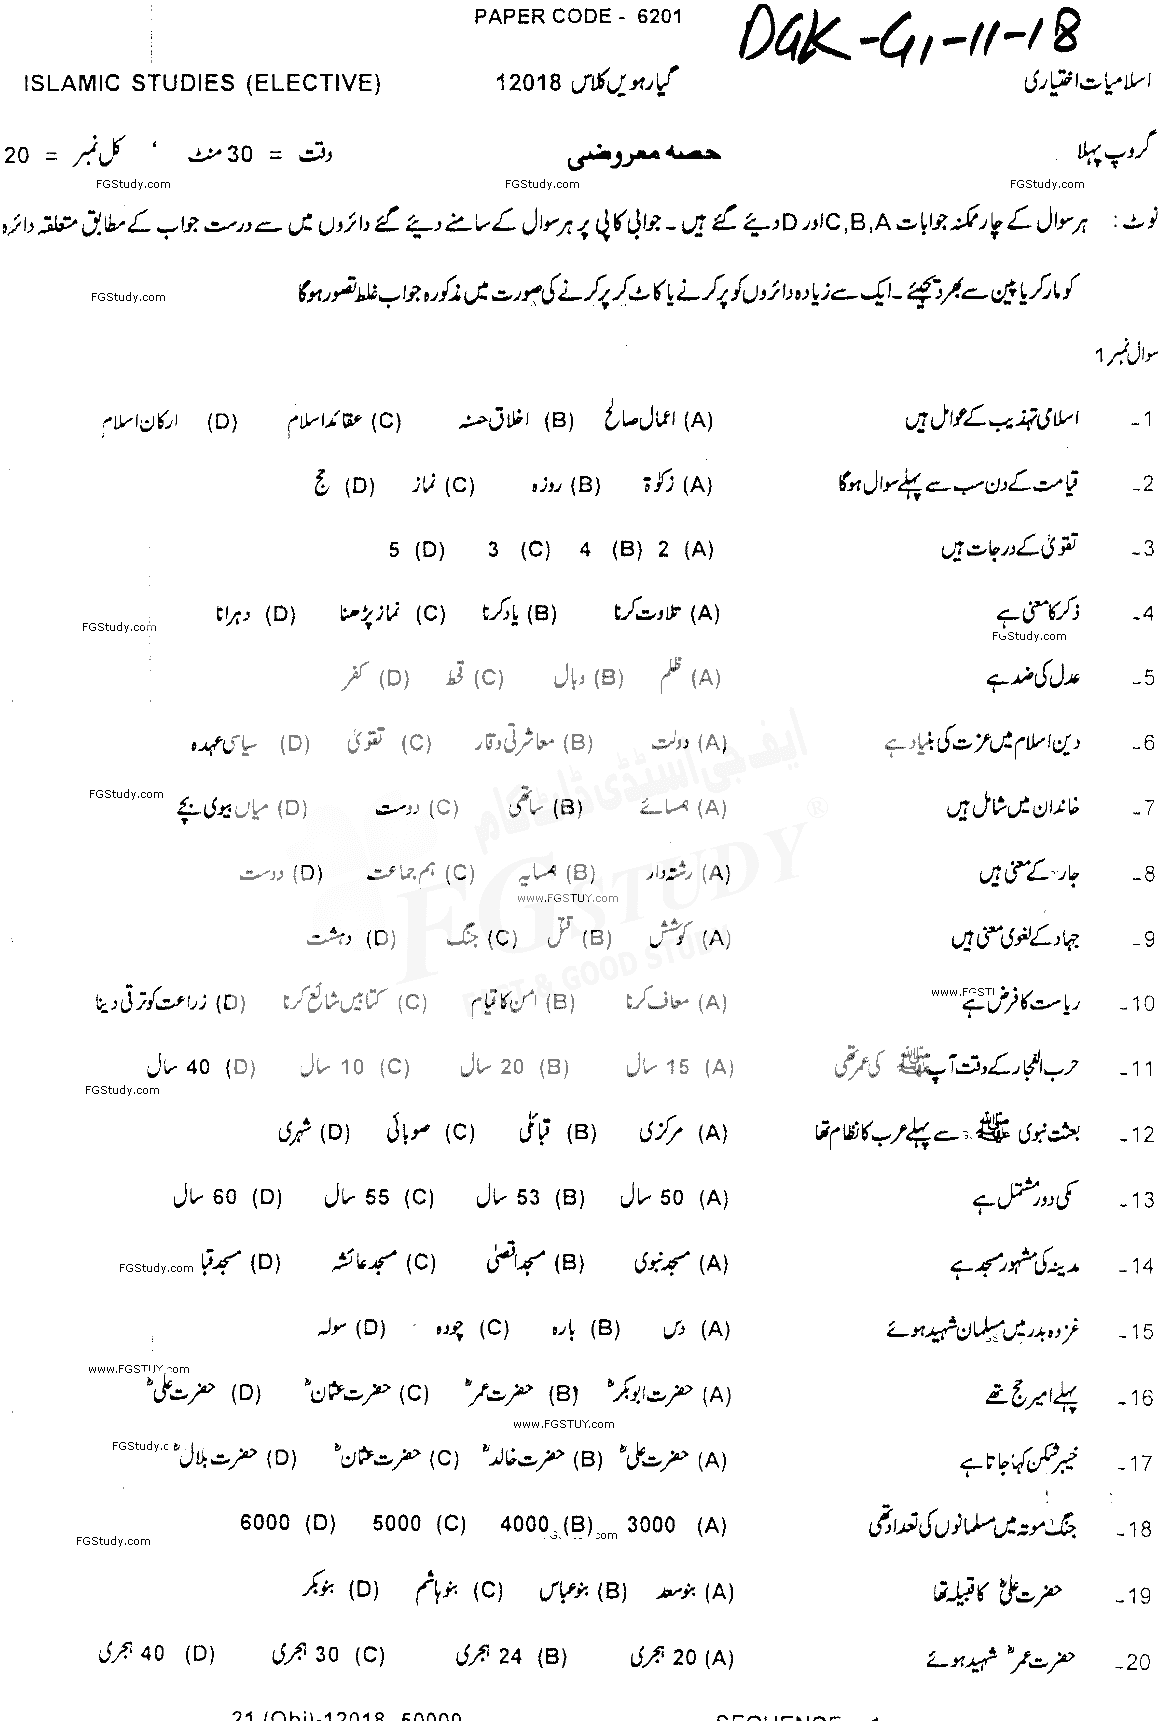 PAPER CODE - 6201
DGK-G1-11-18
اسلامیات اختیاری گیارہویں کلاس 12018 ISLAMIC STUDIES (ELECTIVE)
گروپ پہلا حصہ معروضی وقت = 30 منٹ ، کل نمبر = 20
FGStudy.com FGStudy.com FGStudy.com
نوٹ : ہر سوال کے چار ممکنہ جوابات C,B,A اور D دیئے گئے ہیں ۔ جوابی کاپی پر ہر سوال کے سامنے دیئے گئے دائروں میں سے درست جواب کے مطابق متعلقہ دائرہ
کو مارکر یا پین سے بھر دیجیئے ۔ ایک سے زیادہ دائروں کو پر کرنے یا کاٹ کر پر کرنے کی صورت میں مذکورہ جواب غلط تصور ہوگا
FGStudy.com
سوال نمبر 1
1۔ اسلامی تہذیب کے عوامل ہیں (A) اعمال صالح (B) اخلاق حسنہ (C) عقائد اسلام (D) ارکان اسلام
2۔ قیامت کے دن سب سے پہلے سوال ہوگا (A) زکوٰۃ (B) روزہ (C) نماز (D) حج
3۔ تقویٰ کے درجات ہیں (A) 2 (B) 4 (C) 3 (D) 5
4۔ ذکر کا معنی ہے (A) تلاوت کرنا (B) یاد کرنا (C) نماز پڑھنا (D) دہرانا
FGStudy.com FGStudy.com
5۔ عدل کی ضد ہے (A) ظلم (B) وبال (C) قحط (D) کفر
6۔ دین اسلام میں عزت کی بنیاد ہے (A) دولت (B) معاشرتی وقار (C) تقویٰ (D) سیاسی عہدہ
ایف جی اسٹڈی ڈاٹ کام
FGStudy.com
7۔ خاندان میں شامل ہیں (A) ہمسائے (B) ساتھی (C) دوست (D) میاں بیوی بچے
FGSTUDY ®
8۔ جار کے معنی ہیں (A) رشتہ دار (B) ہمسایہ (C) ہم جماعت (D) دوست
www.FGSTUY.com
9۔ جہاد کے لغوی معنی ہیں (A) کوشش (B) قتل (C) جنگ (D) دہشت
& GOOD STUDY
10۔ ریاست کا فرض ہے (A) معاف کرنا (B) امن کا قیام (C) کتابیں شائع کرنا (D) زراعت کو ترقی دینا
11۔ حرب الفجار کے وقت آپ ﷺ کی عمر تھی (A) 15 سال (B) 20 سال (C) 10 سال (D) 40 سال
FGStudy.com
12۔ بعثت نبوی ﷺ سے پہلے عرب کا نظام تھا (A) مرکزی (B) قبائلی (C) صوبائی (D) شہری
13۔ مکی دور مشتمل ہے (A) 50 سال (B) 53 سال (C) 55 سال (D) 60 سال
14۔ مدینہ کی مشہور مسجد ہے (A) مسجد نبوی (B) مسجد اقصیٰ (C) مسجد عائشہ (D) مسجد قبا
FGStudy.com
15۔ غزوہ بدر میں مسلمان شہید ہوئے (A) دس (B) بارہ (C) چودہ (D) سولہ
www.FGSTUY.com
16۔ پہلے امیر حج تھے (A) حضرت ابوبکرؓ (B) حضرت عمرؓ (C) حضرت عثمانؓ (D) حضرت علیؓ
www.FGSTUY.com
17۔ خیبر شکن کہا جاتا ہے (A) حضرت علیؓ (B) حضرت خالدؓ (C) حضرت عثمانؓ (D) حضرت بلالؓ
18۔ جنگ موتہ میں مسلمانوں کی تعداد تھی (A) 3000 (B) 4000 (C) 5000 (D) 6000
FGStudy.com
19۔ حضرت علیؓ کا قبیلہ تھا (A) بنوسعد (B) بنوعباس (C) بنو ہاشم (D) بنوبکر
20۔ حضرت عمرؓ شہید ہوئے (A) 20 ہجری (B) 24 ہجری (C) 30 ہجری (D) 40 ہجری
21 (Obj)-12018-50000 SEQUENCE - 1